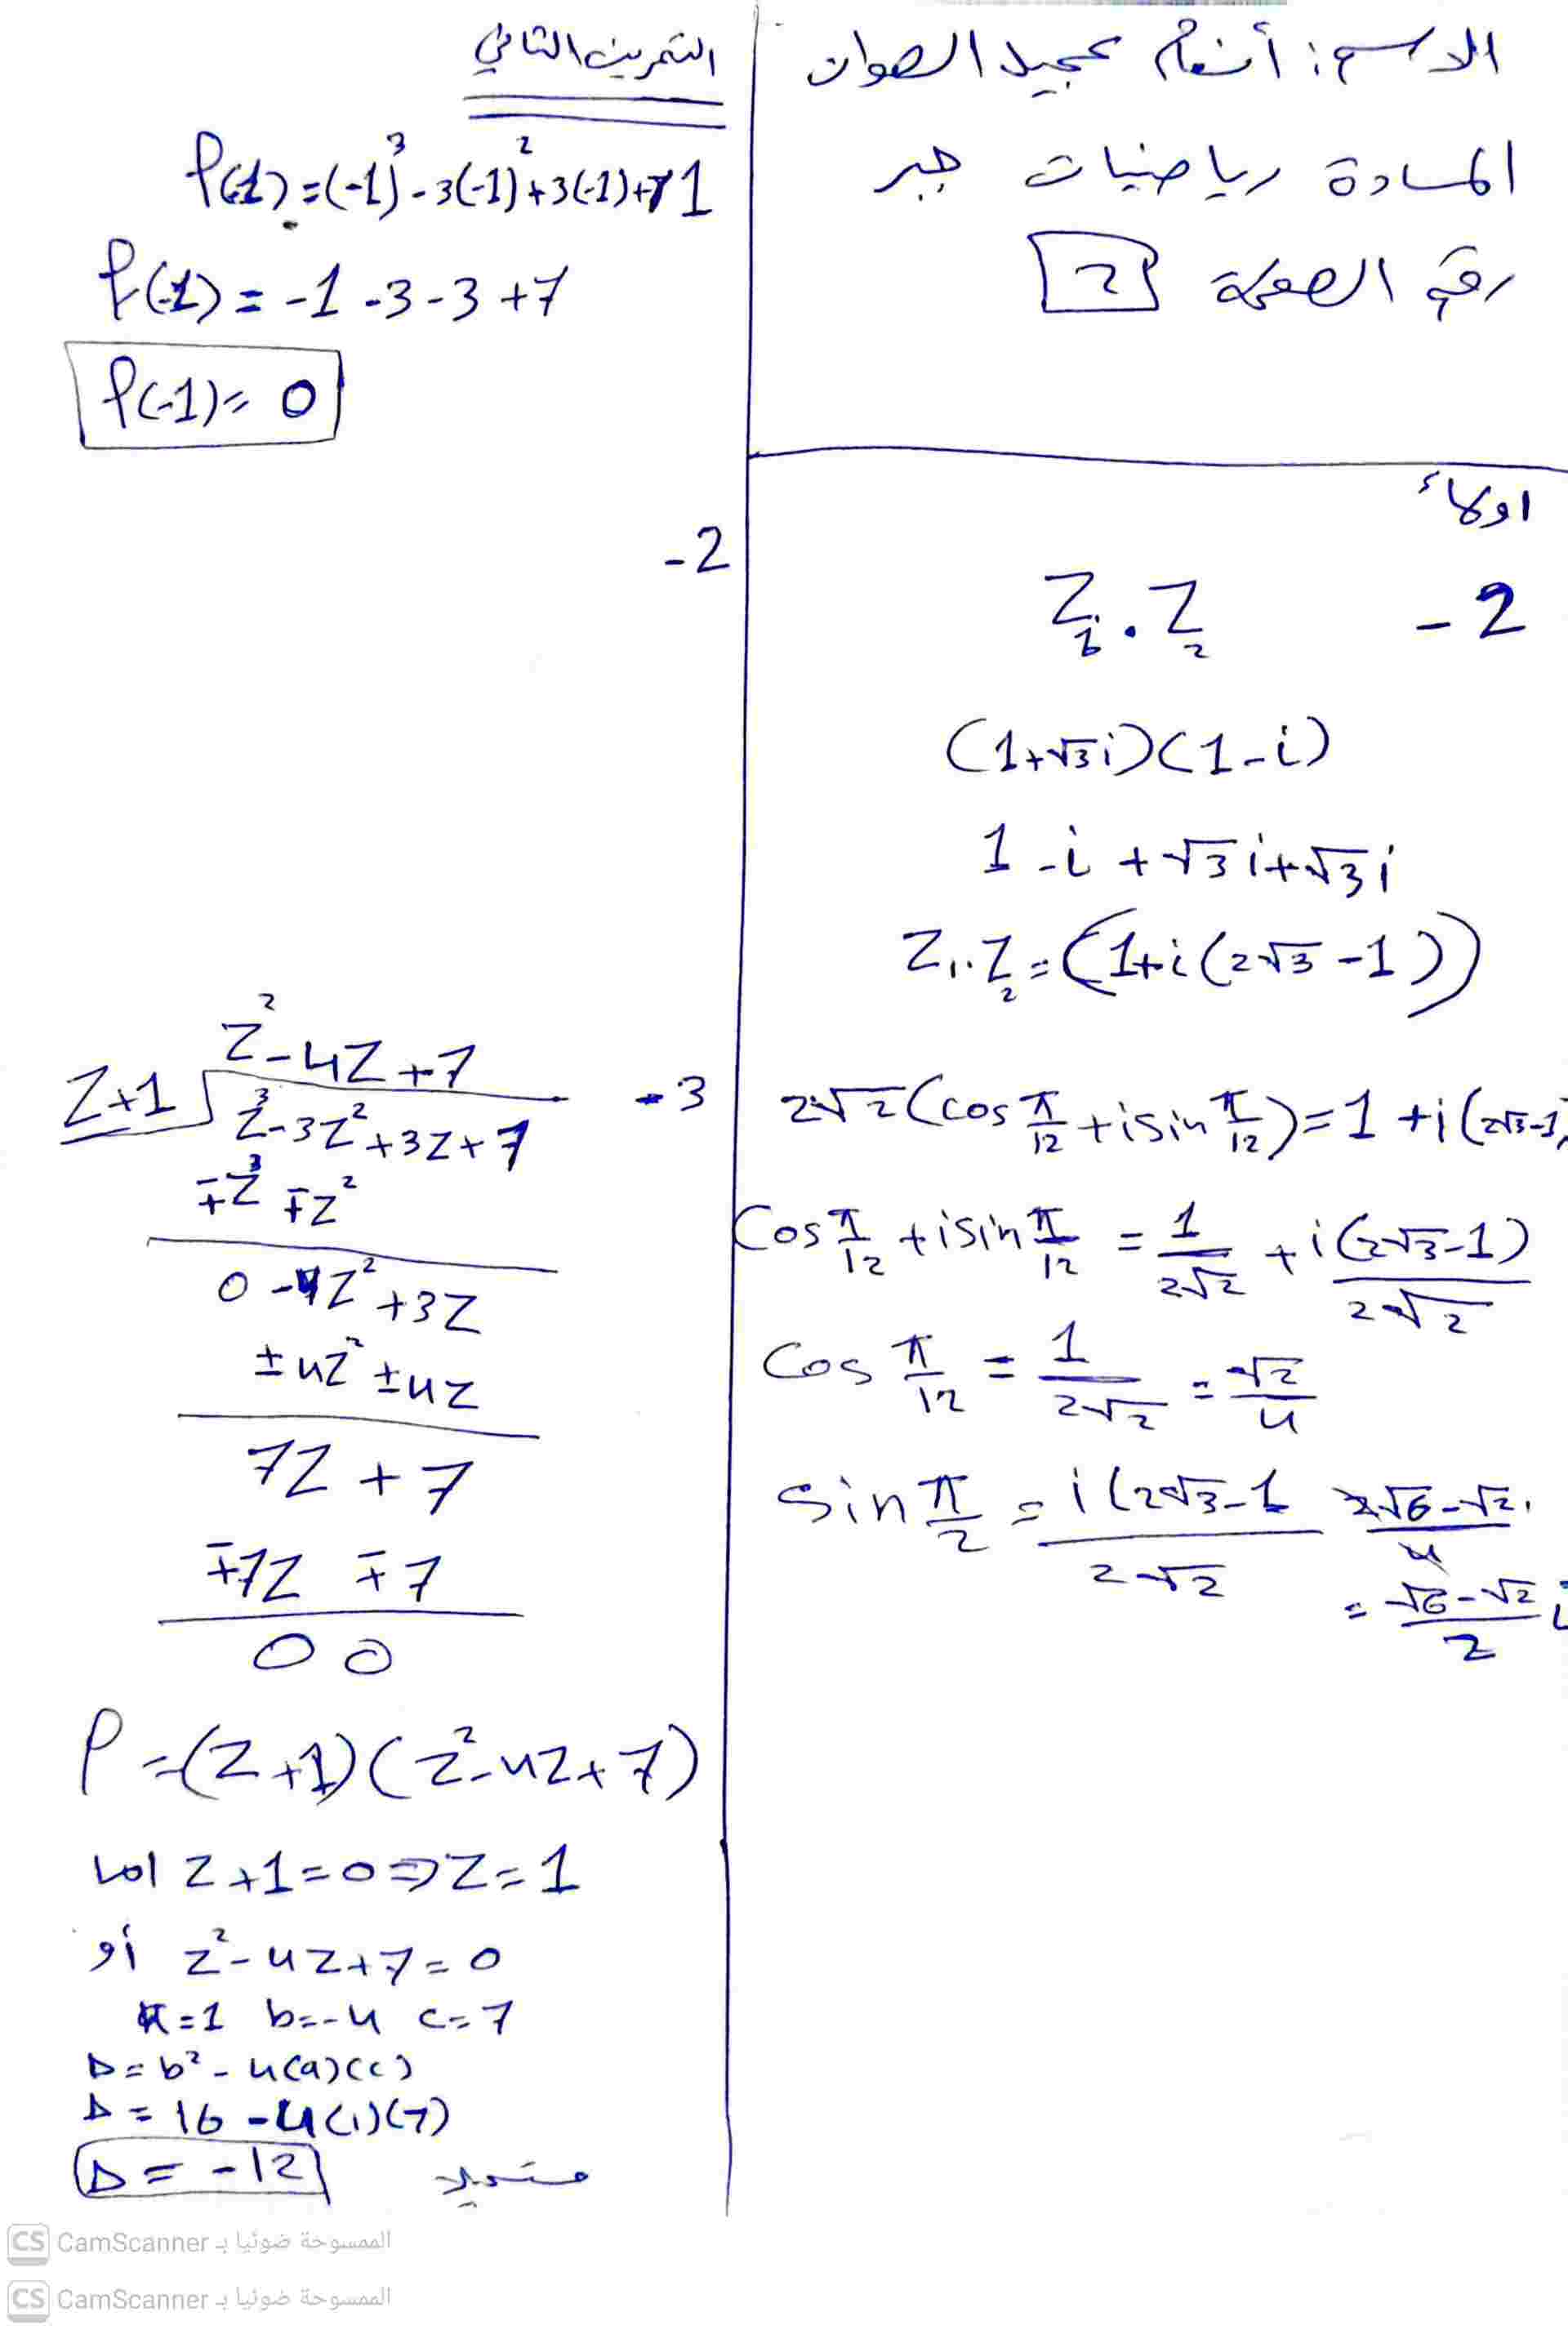 الاسم: أنغام عجيل الصوان
المادة رياضيات جبر
رقم الصفحة 2
اولاً
- 2
Z₁ . Z₂
(1+√3i)(1-i)
1 -i + √3 i+√3 i
Z₁.Z₂ = (1+i(2√3 -1))
2√2(cos π/12 + isin π/12) = 1 + i(2√3-1)
Cos π/12 + isin π/12 = 1/2√2 + i(2√3-1)/2√2
Cos π/12 = 1/2√2 = √2/4
Sin π/2 = i(2√3-1/2√2 2√6-√2/4
= √6-√2/2 i
التمرين الثاني
P(-1) = (-1)³ - 3(-1)² + 3(-1) + 7
P(-1) = -1 -3 -3 +7
P(-1) = 0
- 2
- 3
z² - 4Z + 7
Z+1 √ Z³ - 3Z² + 3Z + 7
∓Z³ ∓Z²
0 -4Z² + 3Z
±4Z² ±4Z
7Z + 7
∓7Z ∓7
0 0
P = (Z+1)(Z²-4Z+7)
اما Z+1=0 ⇒ Z=1
أو Z²-4Z+7=0
a=1 b=-4 c=7
Δ = b² - 4(a)(c)
Δ = 16 - 4(1)(7)
Δ = -12
الممسوحة ضوئيا بـ CamScanner
الممسوحة ضوئيا بـ CamScanner